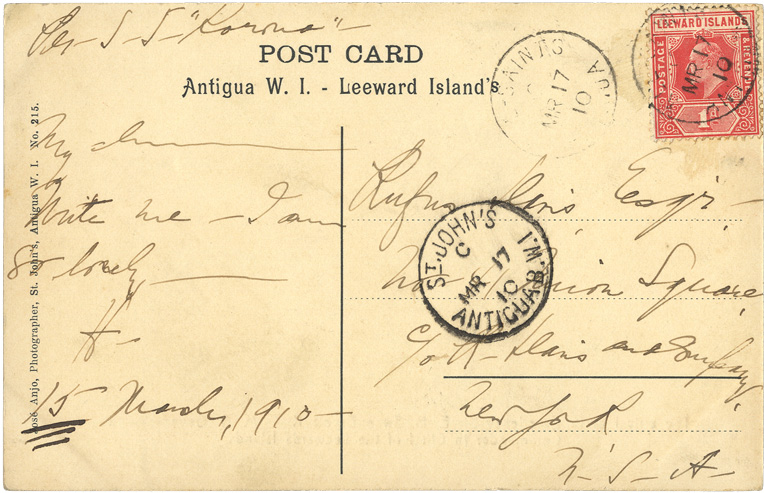 Per S-S "Korona"
POST CARD
Antigua W. I. - Leeward Island's
ALL SAINTS
C
MR 17
10
LEEWARD ISLANDS
POSTAGE
& REVENUE
1D
MR 17
10
José Anjo, Photographer, St. John's, Antigua W. I. No. 215.
My
Write me - I am
so lonely
H-
15 March, 1910-
ST. JOHN'S
C
MR 17
10
ANTIGUA B.W.I.
Rufus Esqr
Union Square
c/o and Company
New York
U-S-A-